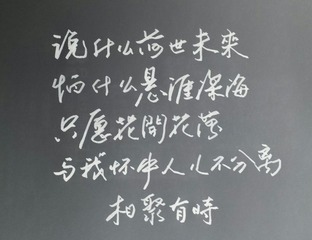 说什么前世未來
怕什么悬涯深海
只愿花開花落
与我怀中人儿不分离
相聚有時